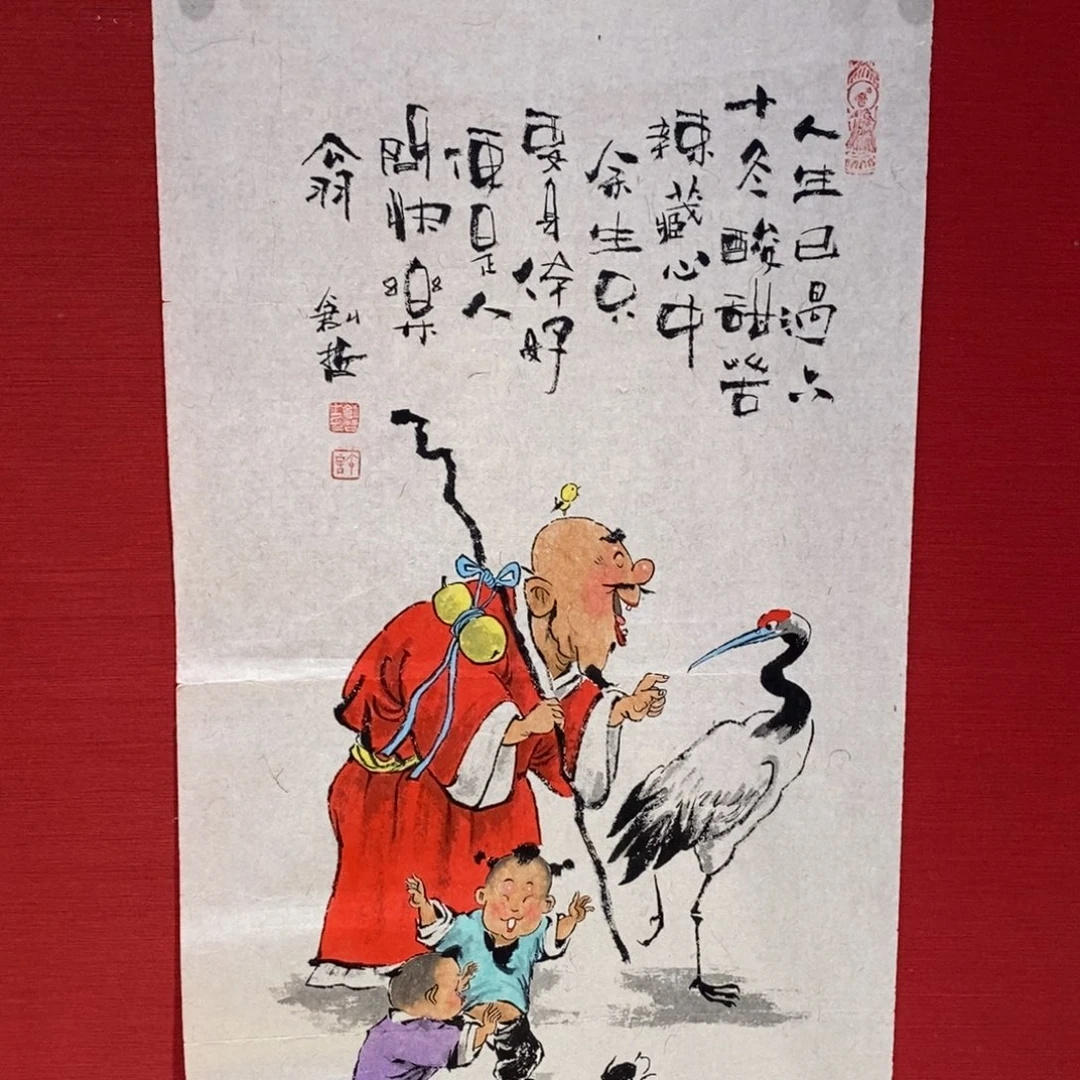 人生已過六
十冬酸甜苦
辣藏心中
余生只
要身体好
便是人
間快樂
翁